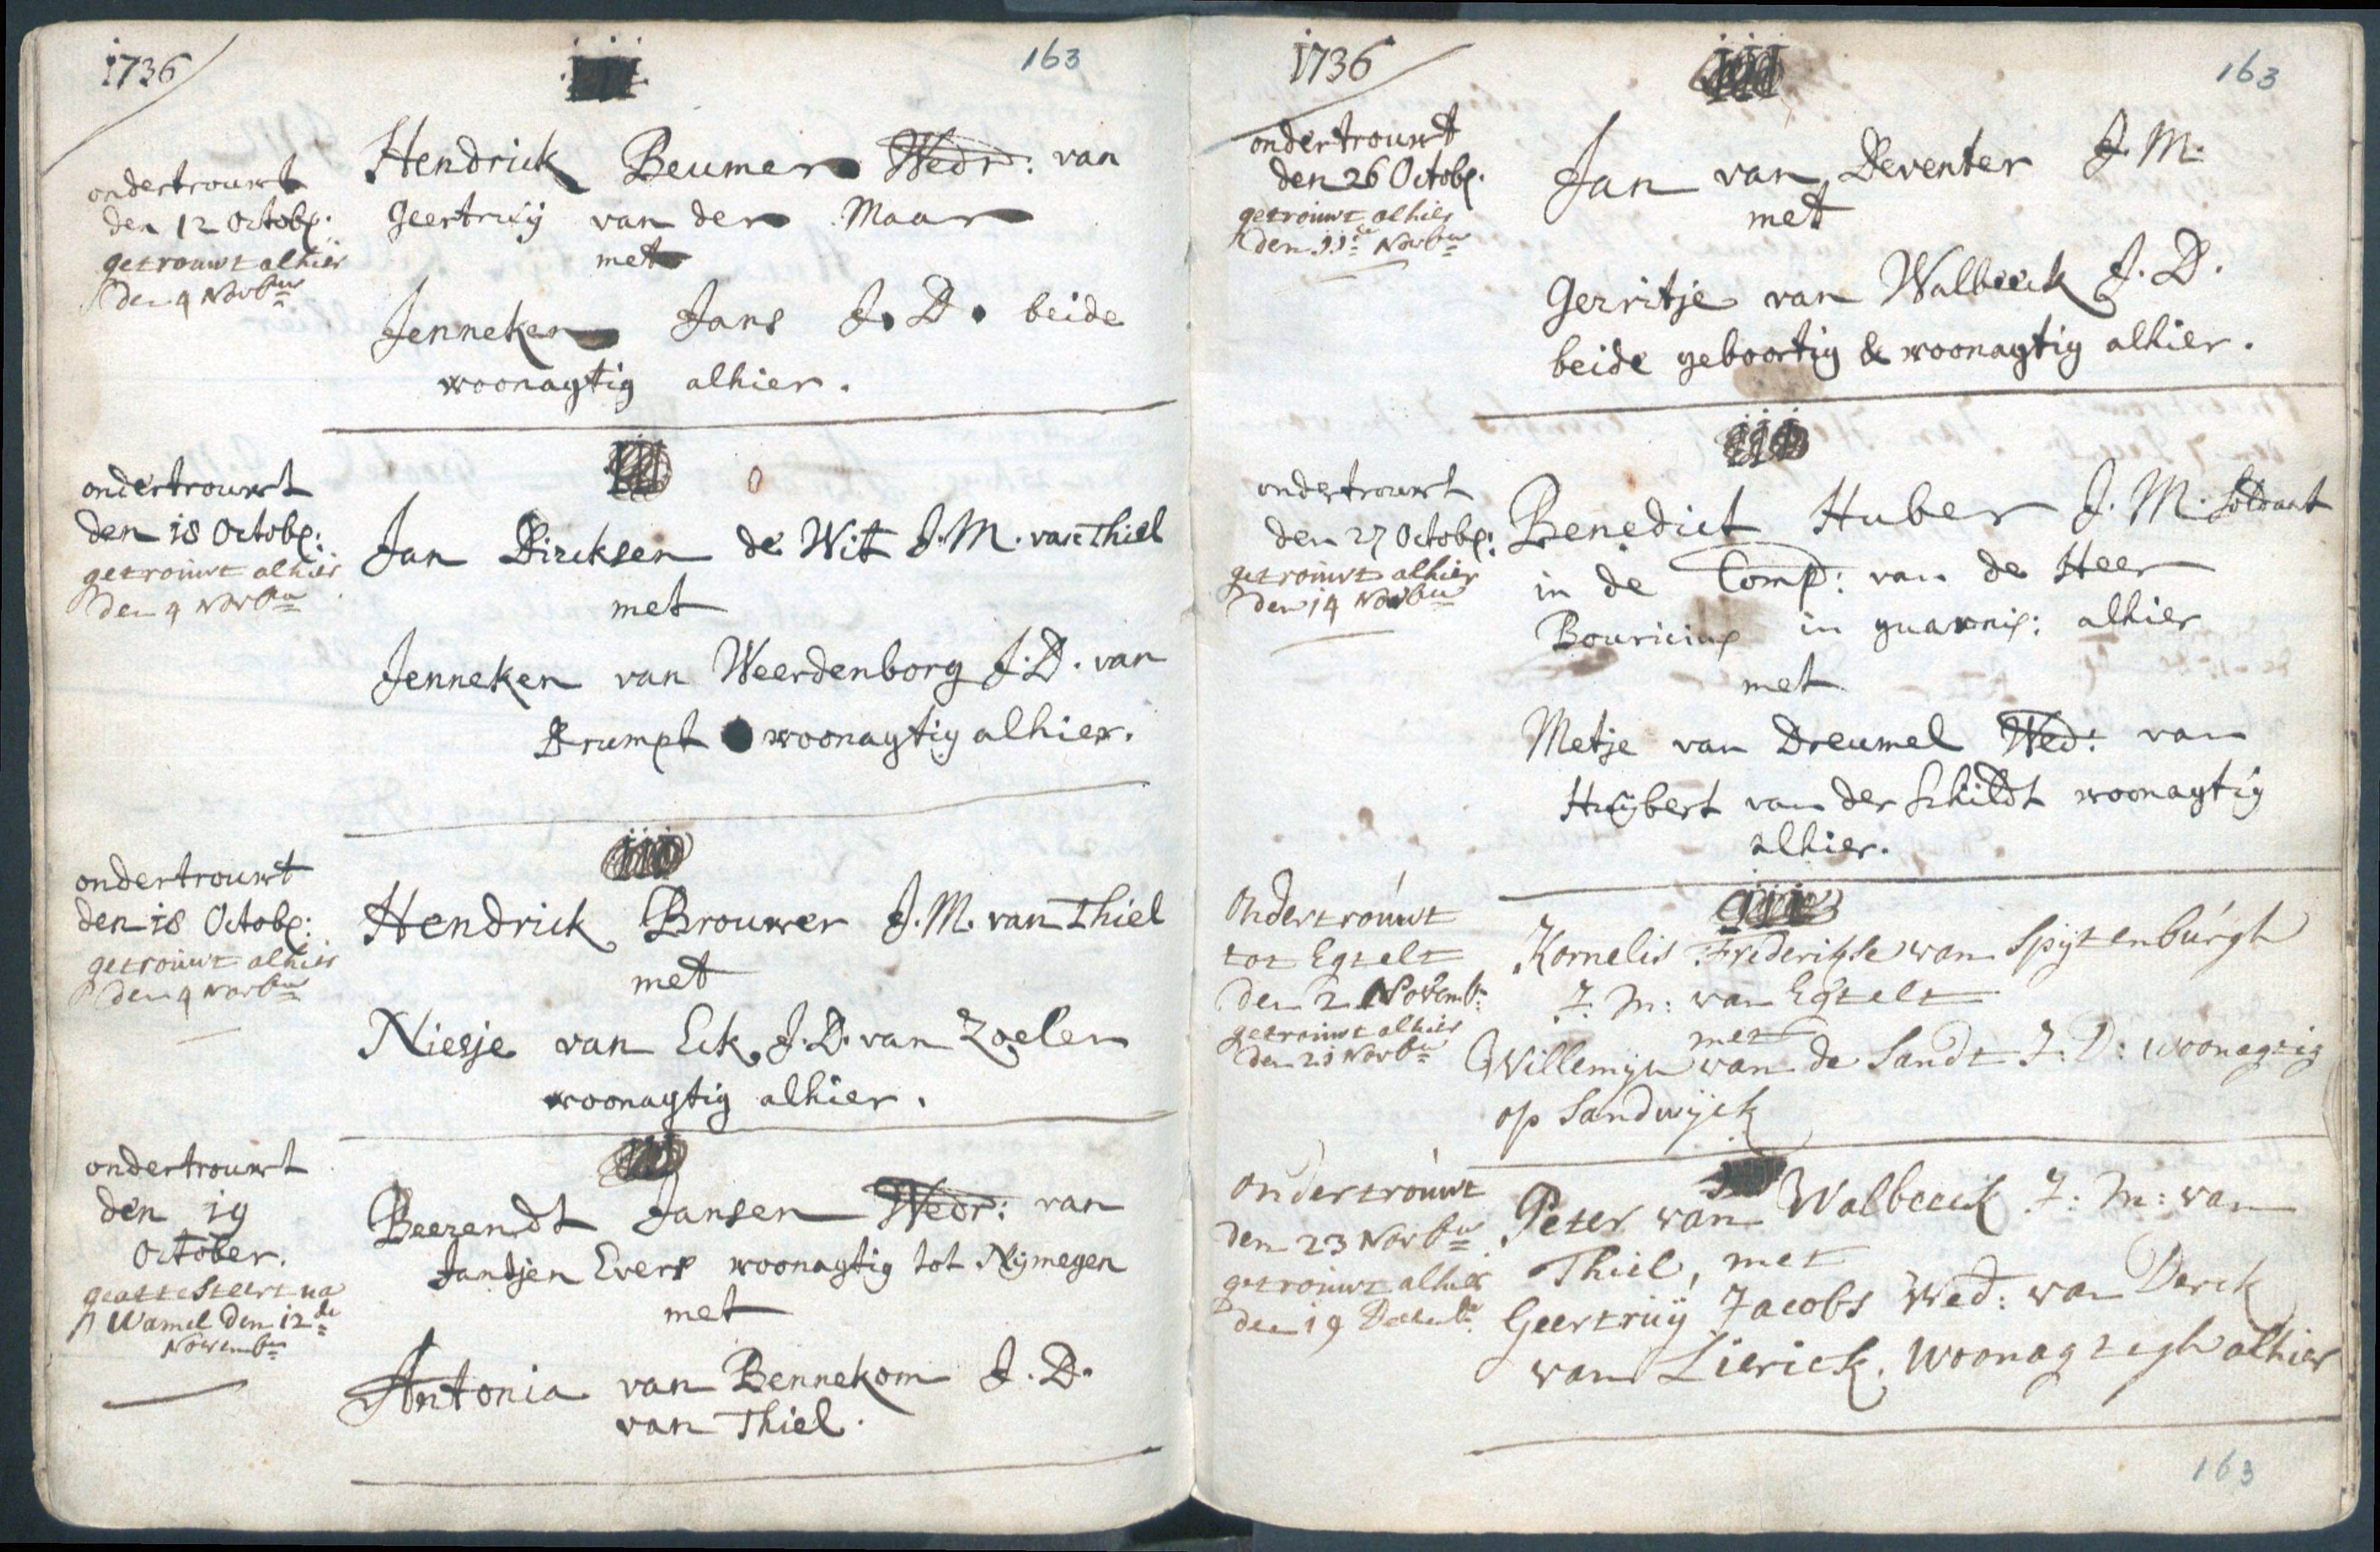 1736
163
ondertrouwt
den 12 Octobr.
getrouwt alhier
den 4 Novbr
Hendrick Beumer Wedr: van
Geertruij van der Maar
met
Jenneken Jans J. D. beide
woonagtig alhier.
iii
ondertrouwt
den 18 Octobr:
getrouwt alhier
den 4 Novbr
Jan Dircksen de Wit J. M. van Thiel
met
Jenneken van Weerdenborg J. D. van
Drumpt woonagtig alhier.
iii
ondertrouwt
den 18 Octobr:
getrouwt alhier
den 4 Novbr
Hendrick Brouwer J. M. van Thiel
met
Niesje van Eck J. D. van Zoelen
woonagtig alhier.
ondertrouwt
den 19
October.
geattesteert na
Wamel den 12de
Novembr
Beerendt Jansen Wedr: van
Jantjen Evers woonagtig tot Nijmegen
met
Antonia van Bennekom J. D.
van Thiel.
1736
iii
163
ondertrouwt
den 26 Octobr.
getrouwt alhier
den 11de Novbr
Jan van Deventer J. M.
met
Gerritje van Walbeeck J. D.
beide geboortig & woonagtig alhier.
iii
ondertrouwt
den 27 Octobr:
getrouwt alhier
den 14 Novbr
Benedict Huber J. M. Soldaat
in de Comp: van de Heer
Bouricius in guarnis: alhier
met
Metje van Dreumel Wed: van
Huijbert van der Schildt woonagtig
alhier.
iii
Ondertrouwt
tot Egtelt
den 2 Novemb:
getrouwt alhier
den 21 Novbr
Kornelis Frederikse van Spijtenburgh
J: M: van Egtelt
met
Willemijn van de Sandt J: D: woonagtig
op Sandwijck
Ondertrouwt
den 23 Novbr
getrouwt alhier
den 19 Decemb
Peter van Walbeeck J: M: van
Thiel, met
Geertruij Jacobs Wed: van Derck
van Lierick. woonagtigh alhier
163